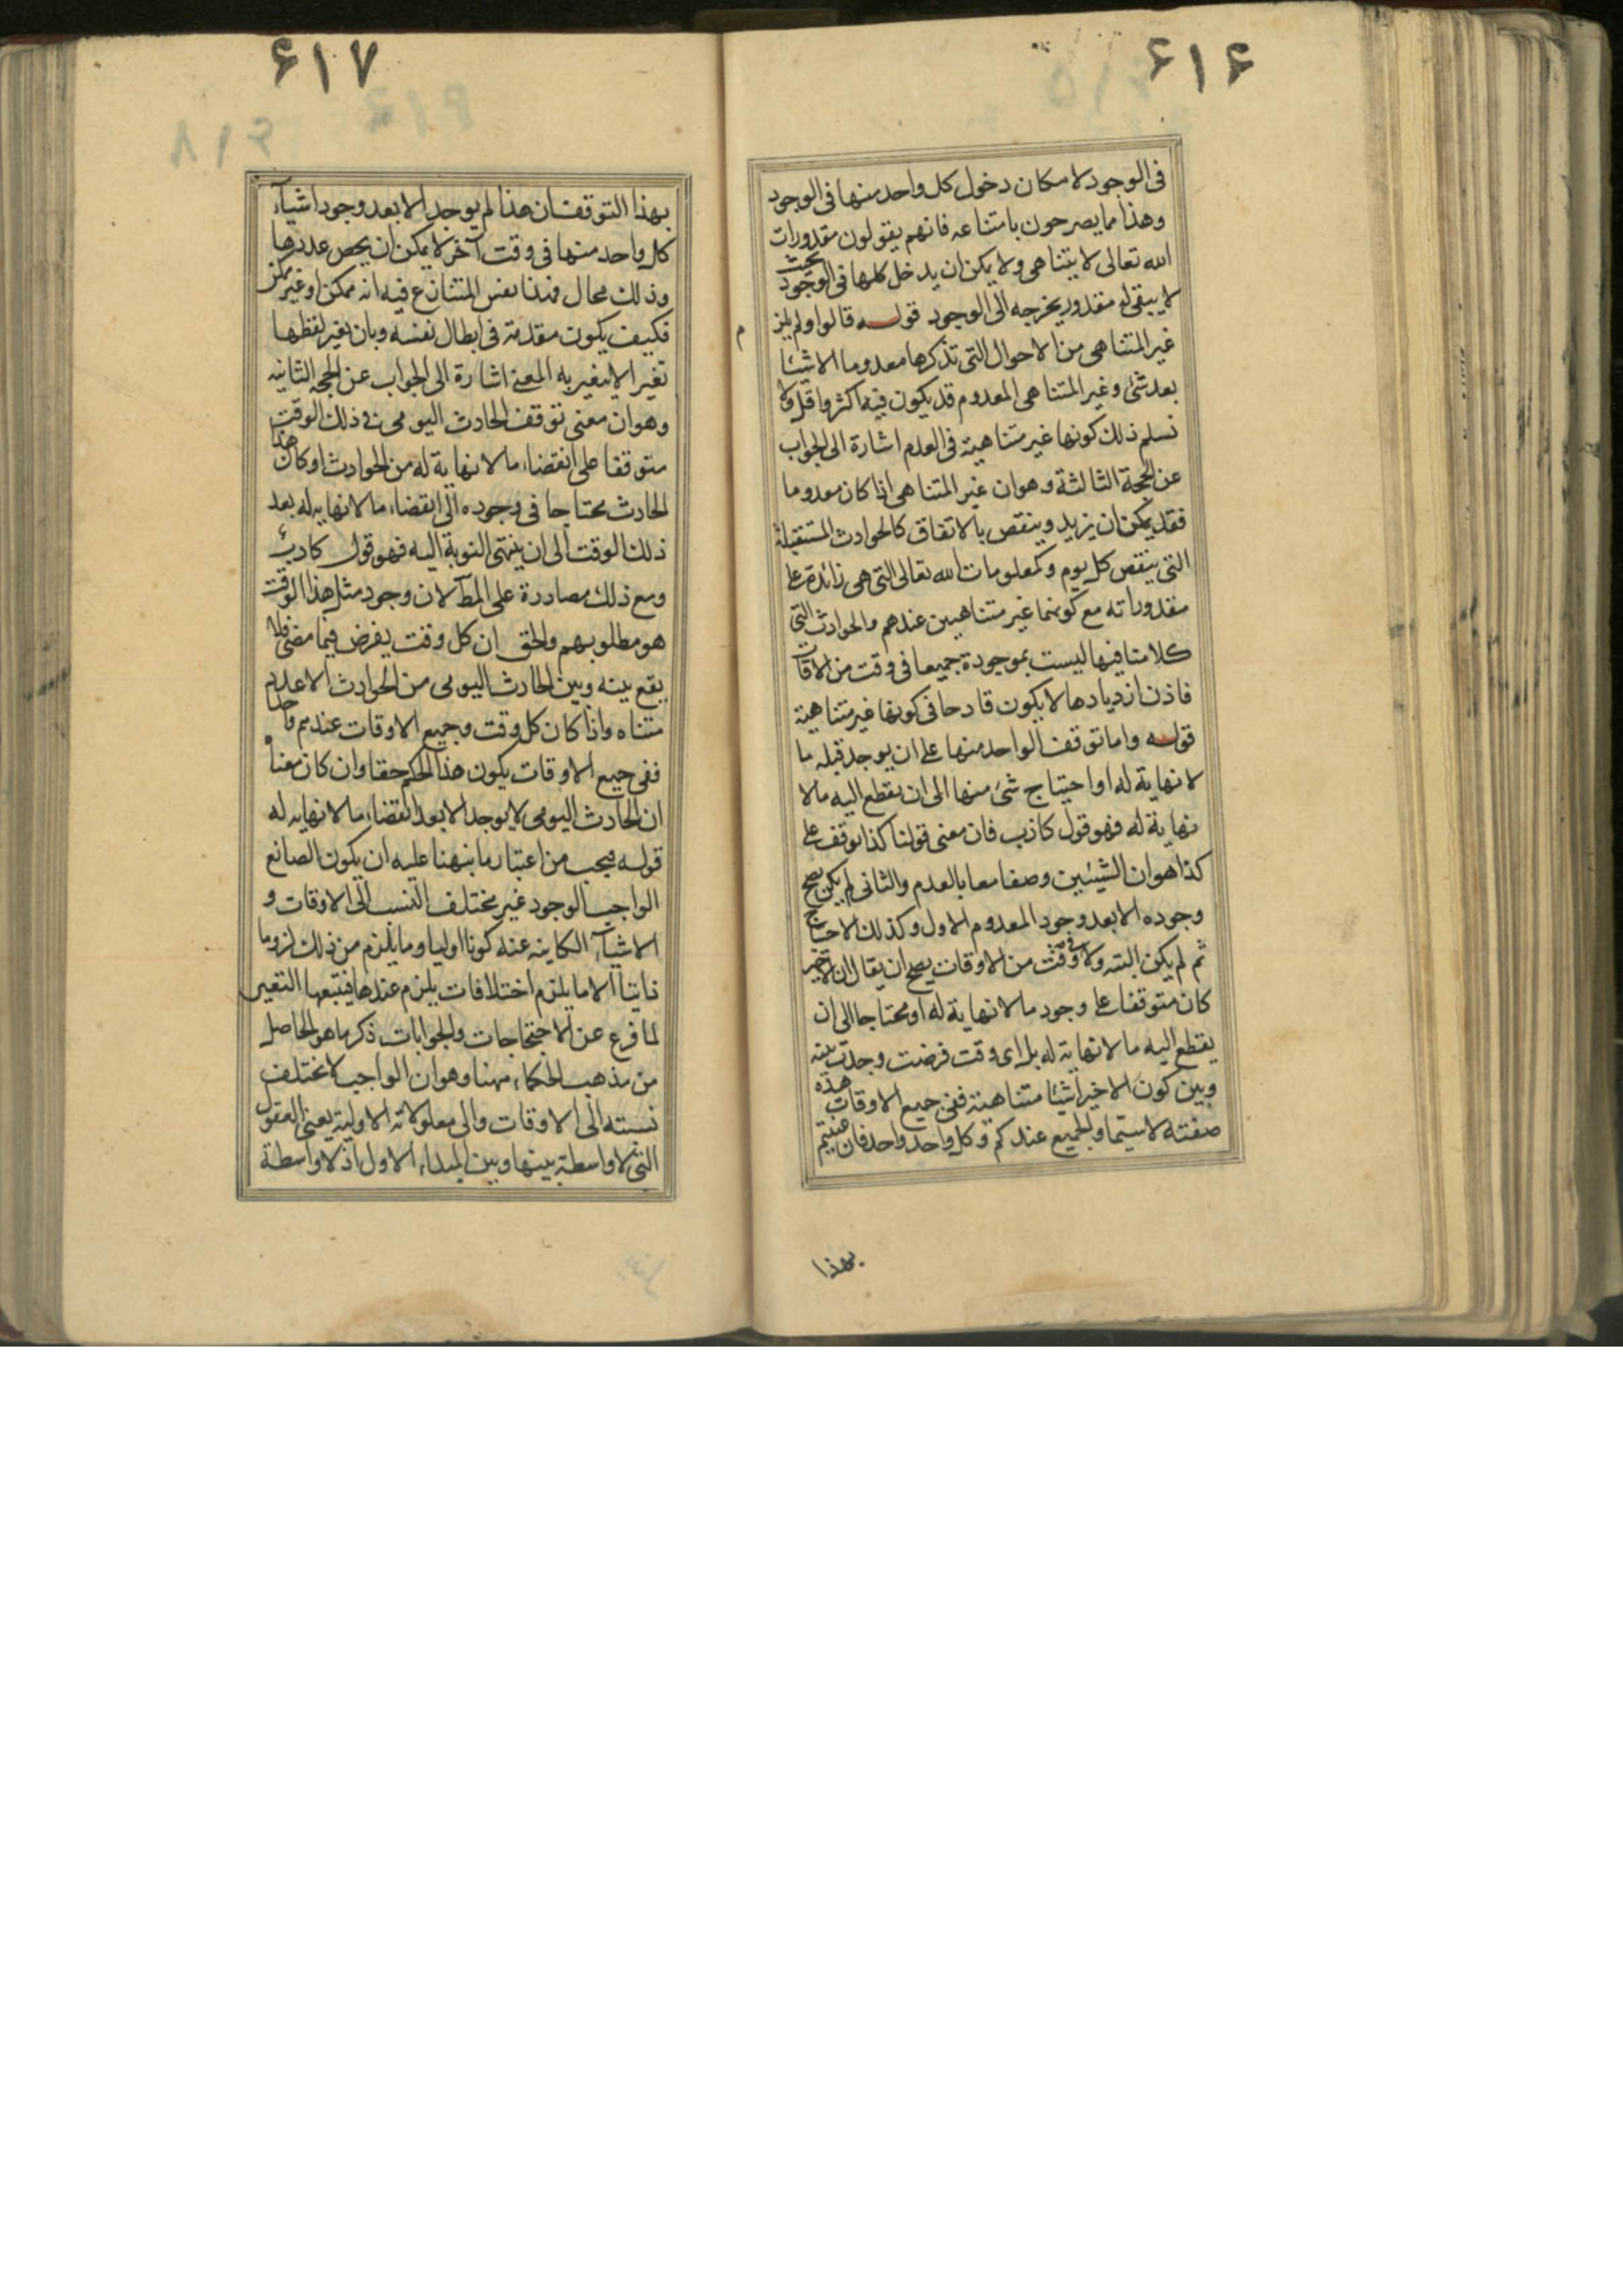 ۶۱۶
فى الوجود لامكان دخول كل واحد منها فى الوجود
وهذا مما يصرحون بامتناعه فانهم يقولون مقدورات
الله تعالى لا يتناهى ولا يمكن ان يدخل كلها فى الوجود بحيث
لا يبقى له مقدور يخرجه الى الوجود قوله قالوا ولم يلز م
غير المتناهى من الاحوال التى تذكرها معدوما الا شيئا
بعد شئ وغير المتناهى المعدوم قد يكون فيه اكثر واقل ولا
نسلم ذلك كونها غير متناهية فى العدم اشارة الى الجواب
عن الحجة الثالثة وهو ان غير المتناهى اذا كان معدوما
فقد يمكن ان يزيد وينقص بالاتفاق كالحوادث المستقبلة
التى ينقص كل يوم وكمعلومات الله تعالى التى هى زائدة على
مقدوراته مع كونهما غير متناهيين عندهم والحوادث التى
كلامنا فيها ليست بموجودة جميعا فى وقت من الاوقات
فاذن ازديادها لا يكون قادحا فى كونها غير متناهية
قوله واما توقف الواحد منها على ان يوجد قبله ما
لا نهاية له او احتياج شئ منها الى ان يقطع اليه ما لا
نهاية له فهو قول كاذب فان معنى قولنا كذا توقف على
كذا هو ان الشيئين وصفا معا بالعدم والثانى لم يكن يصح
وجوده الا بعد وجود المعدوم الاول وكذلك الاحتياج
ثم لم يكن البتة ولا فى وقت من الاوقات يصح ان يقال ان الاخير
كان متوقفا على وجود ما لا نهاية له او محتاجا الى ان
يقطع اليه ما لا نهاية له بل اى وقت فرضت وجدت بينه
وبين كون الاخير اشيئا متناهية ففى جميع الاوقات هذه
صفته لا سيما والجميع عندكم وكل واحد واحد فان عنيتم
بهذا
۶۱۷
بهذا التوقف ان هذا لم يوجد الا بعد وجود اشيآء
كل واحد منها فى وقت آخر لا يمكن ان يحص عددها
وذلك محال فهذا نفس المتنازع فيه انه ممكن او غير ممكن
فكيف يكون مقدمة فى ابطال نفسه وبان يغير لفظها
تغير الا يتغير به المعنى اشارة الى الجواب عن الحجة الثانيه
وهو ان معنى توقف الحادث اليومى فى ذلك الوقت
متوقفا على انقضاء ما لا نهاية له من الحوادث او كان هذا
الحادث محتاجا فى وجوده الى انقضاء ما لا نهايه له بعد
ذلك الوقت الى ان ينتهى النوبة اليه فهو قول كاذب
ومع ذلك مصادرة على المط لان وجود مثل هذا الوقت
هو مطلوبهم والحق ان كل وقت يفرض فيما مضى فلا
يقع بينه وبين الحادث اليومى من الحوادث الا عدد
متناه واذا كان كل وقت وجميع الاوقات عندهم واحدا
ففى جميع الاوقات يكون هذا الحكم حقا وان كان معناه
ان الحادث اليومى لا يوجد الا بعد انقضاء ما لا نهايه له
قوله فيجب من اعتبار ما نبهنا عليه ان يكون الصانع
الواجب الوجود غير مختلف النسب الى الاوقات و
الاشيآء الكاينه عنه كونا اوليا وما يلزم من ذلك لزوما
ذاتيا الا ما يلزم اختلافات يلزم عندها فيتبعها التغير
لما فرع عن الاحتجاجات والجوابات ذكر ما هو الحاصل
من مذهب الحكماء ههنا وهو ان الواجب لا تختلف
نسبته الى الاوقات والى معلولاته الاولية يعنى العقول
التى لا واسطة بينها وبين المبداء الاول اذ لا واسطة